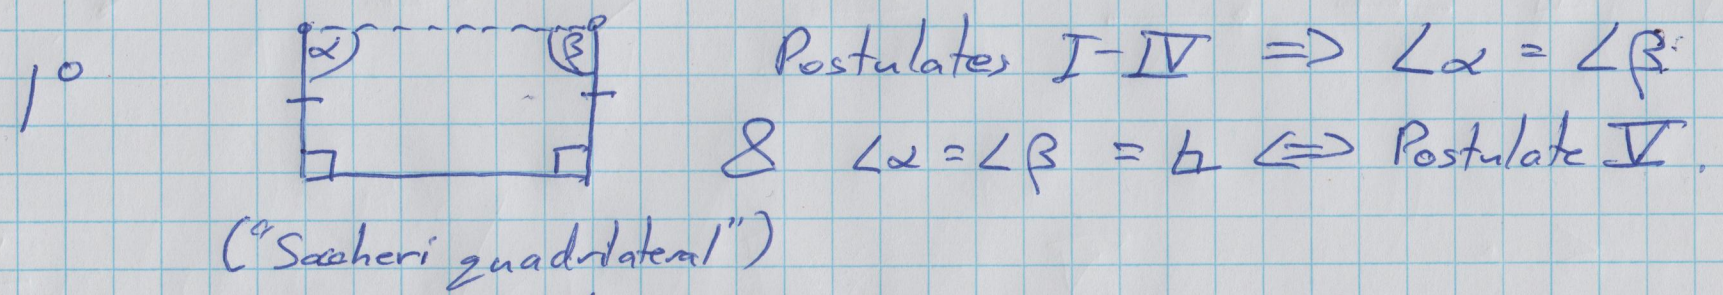 1° α β Postulates I-IV => ∠α = ∠β
& ∠α = ∠β = ⦜ <=> Postulate V.
("Saccheri quadrilateral")